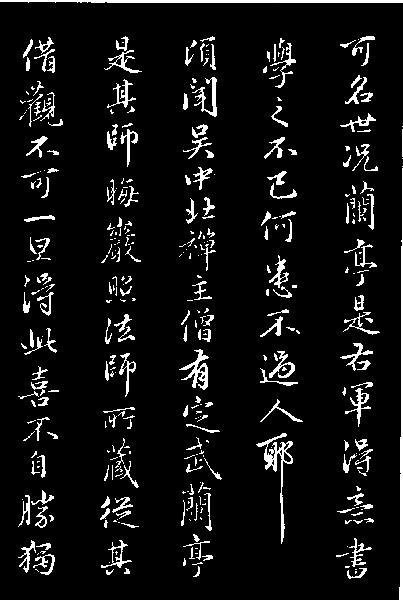 可名世况蘭亭是右軍得意書
學之不已何患不過人耶
頃聞吴中北禪主僧有定武蘭亭
是其師晦巖照法師所藏從其
借觀不可一旦得此喜不自勝獨